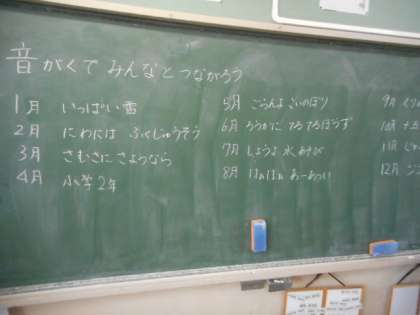 音がくで みんなと つながろう
1月 いっぱい雪
2月 にわには ふくじゅうそう
3月 さむさに さようなら
4月 小学2年
5月 ごらんよ こいのぼり
6月 ろうかに てるてるぼうず
7月 しようよ 水あそび
8月 はぁはぁ あーあつい
9月
10月 十五
11月
12月